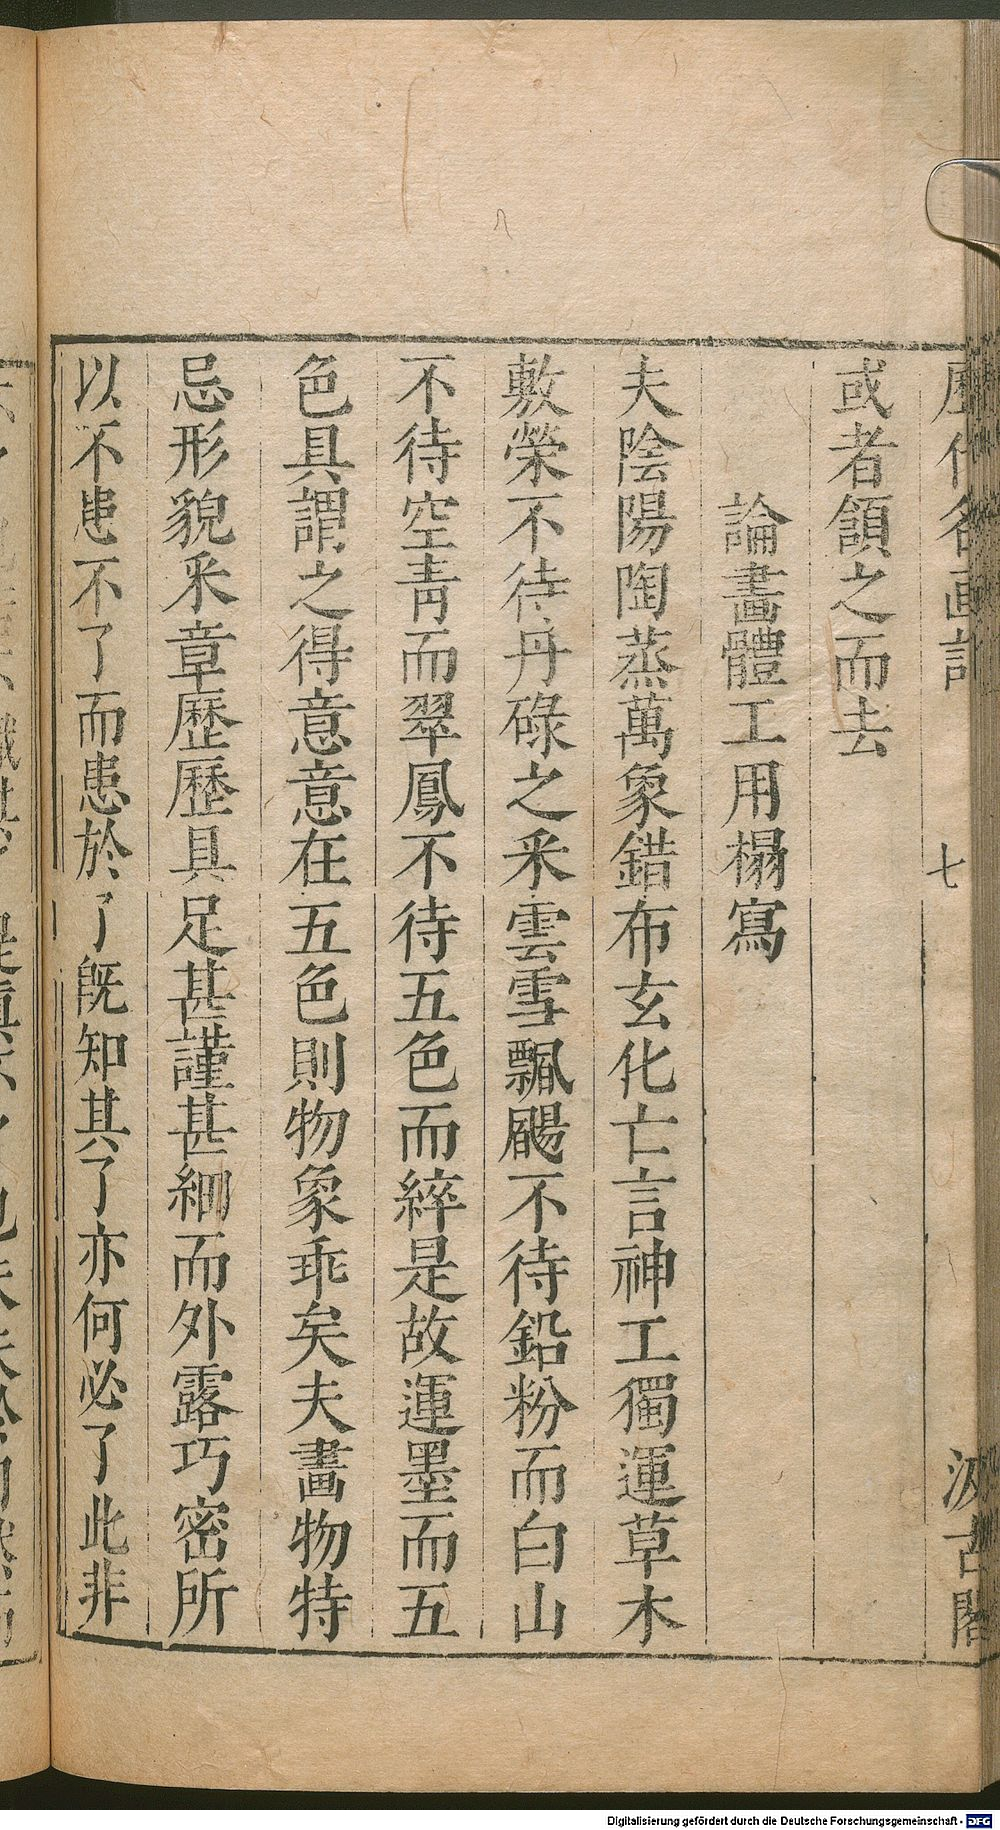 歷代名畫記
七
汲古閣
或者頷之而去
論畫體工用榻寫
夫陰陽陶蒸萬象錯布玄化亡言神工獨運草木
敷榮不待丹碌之釆雲雪飄颺不待鉛粉而白山
不待空青而翠鳳不待五色而綷是故運墨而五
色具謂之得意意在五色則物象乖矣夫畫物特
忌形貌釆章歷歷具足甚謹甚細而外露巧密所
以不患不了而患於了旣知其了亦何必了此非
Digitalisierung gefördert durch die Deutsche Forschungsgemeinschaft - DFG